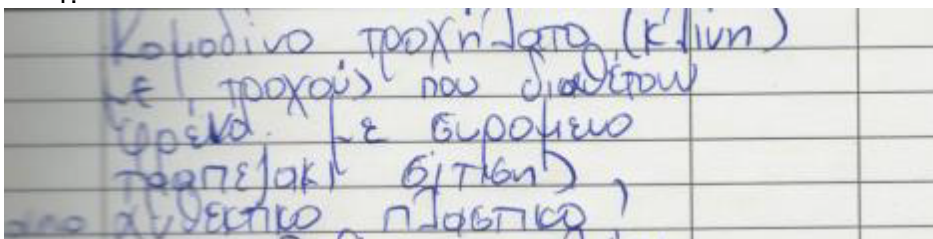 Κομοδίνο τροχήλατο (κλίνη)
με τροχούς που διαθέτουν
φρένα. με συρομενο
τραπεζακι σίτισης
απο ανθεκτικο πλαστικο,